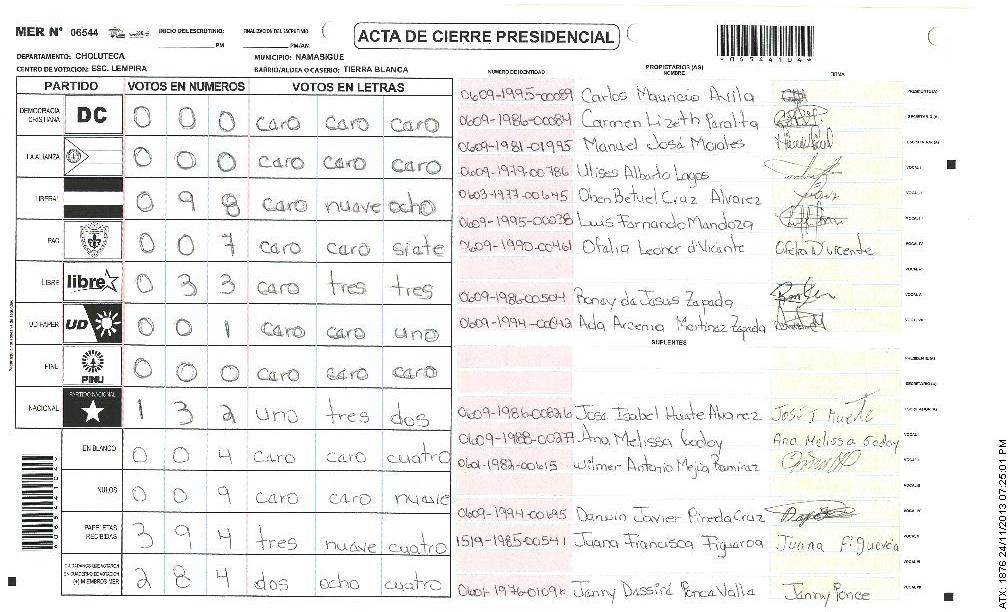 MER Nº 06544 INICIO DEL ESCRUTINIO: FINALIZACION DEL ESCRUTINIO ACTA DE CIERRE PRESIDENCIAL
PM PM/AM *06544104*
DEPARTAMENTO: CHOLUTECA MUNICIPIO: NAMASIGUE
CENTRO DE VOTACION: ESC. LEMPIRA BARRIO/ALDEA O CASERIO: TIERRA BLANCA
NUMERO DE IDENTIDAD PROPIETARIOS (AS) NOMBRE FIRMA
PARTIDO VOTOS EN NUMEROS VOTOS EN LETRAS
DEMOCRACIA CRISTIANA DC 0 0 0 caro caro caro
LA ALIANZA 0 0 0 caro caro caro
LIBERAL 0 9 8 caro nuave ocho
PAC 0 0 7 caro caro siate
LIBRE libre 0 3 3 caro tres tres
UD-FAPER UD 0 0 1 caro caro uno
PINU PINU 0 0 0 caro caro caro
NACIONAL PARTIDO NACIONAL 1 3 2 uno tres dos
EN BLANCO 0 0 4 caro caro cuatro
NULOS 0 0 9 caro caro nuave
PAPELETAS RECIBIDAS 3 9 4 tres nuave cuatro
CIUDADANOS QUE VOTARON EN CUADERNO DE VOTACION (+) MIEMBROS MER 2 8 4 dos ocho cuatro
0609-1995-00089 Carlos Mauricio Avila PRESIDENTE (A)
0609-1986-00084 Carmen Lizeth Paralta SECRETARIO (A)
0609-1981-01995 Manuel José Morales ESCRUTADOR (A)
0609-1979-00786 Ulises Alberto Lagos VOCAL I
0603-1977-00645 Oben Betuel Cruz Alvarez VOCAL II
0609-1995-00038 Luis Farnando Mandoza VOCAL III
0609-1990-00461 Ofalia Leonor d'Vicante Ofelia D'vicente VOCAL IV
VOCAL V
0609-1986-00504 Ronay da Jasus Zapada VOCAL VI
0609-1994-00042 Ada Arcenia Martinaz Zapada VOCAL VII
SUPLENTES
PRESIDENTE (A)
SECRETARIO (A)
0609-1986-00826 Josa Isabel Huate Alvarez José I Huete ESCRUTADOR (A)
0609-1988-00277 Ana Melissa Godoy Ana Melissa Godoy VOCAL I
0601-1982-00615 Wilmer Antonio Mejia Ramiraz VOCAL II
VOCAL III
0609-1994-00695 Darwin Javier Pineda Cruz VOCAL IV
1519-1985-00541 Juana Francisca Figuaroa Juana Figueroa VOCAL V
VOCAL VI
0601-1976-01096 Janny Dassiré Ponca Valla Janny Ponce VOCAL VII
ATX: 1876 24/11/2013 07:25:01 PM